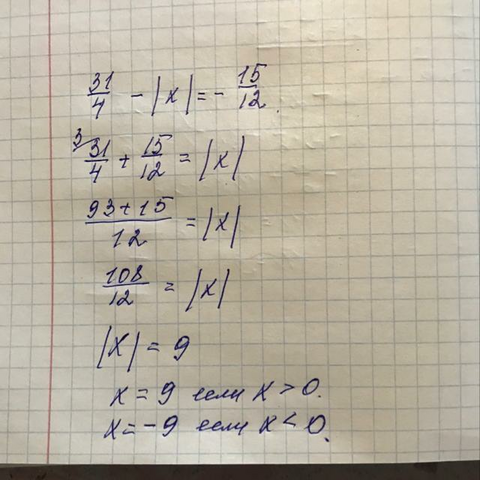 31/4 - |x| = - 15/12
3 31/4 + 15/12 = |x|
93+15/12 = |x|
108/12 = |x|
|x| = 9
x = 9 если x > 0.
x = -9 если x < 0.